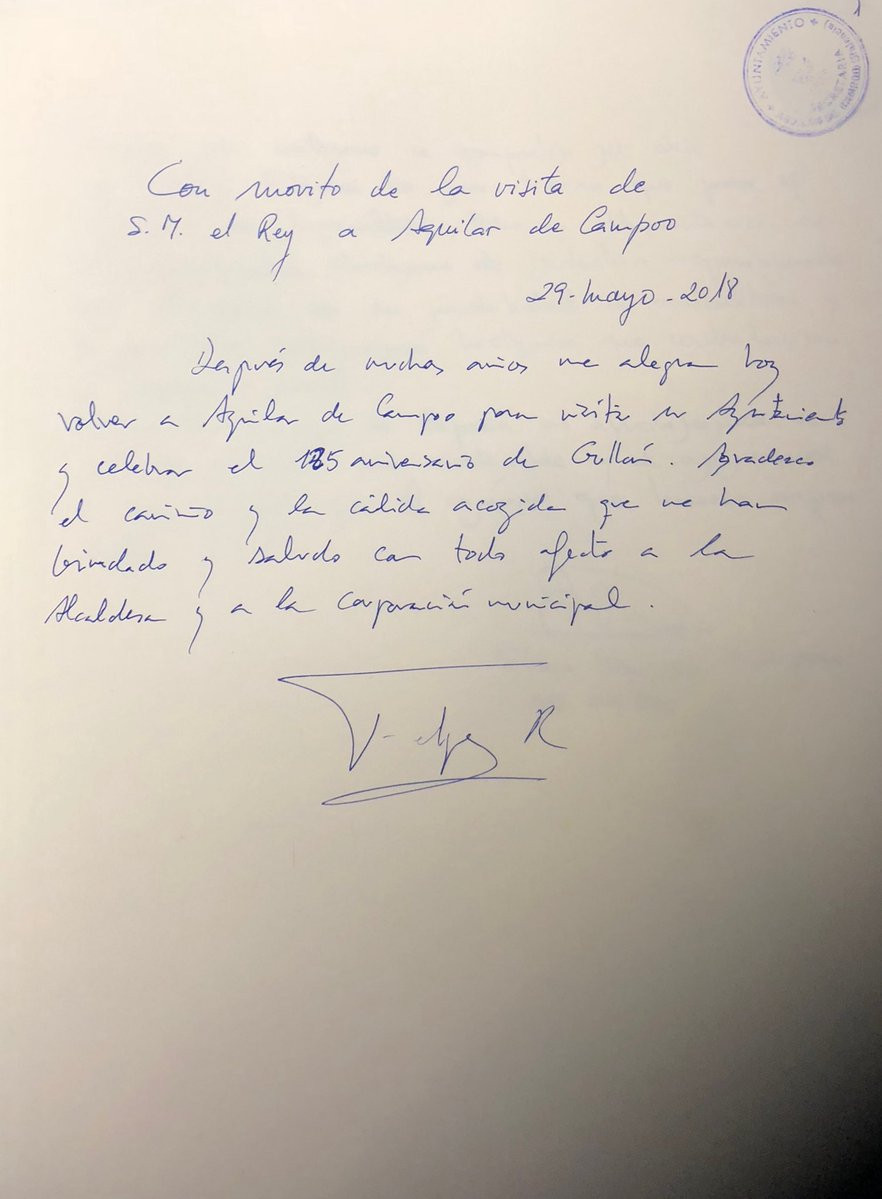 AYUNTAMIENTO
SECRETARIA
Con movito de la visita de
S. M. el Rey a Aguilar de Campoo
29-mayo-2018
Después de muchos años me alegra hoy
volver a Aguilar de Campoo para visitar su Ayuntamiento
y celebrar el 125 aniversario de Gullón. Agradezco
el cariño y la cálida acogida que me han
brindado y saludo con todo afecto a la
Alcaldesa y a la Corporación municipal.
Felipe R